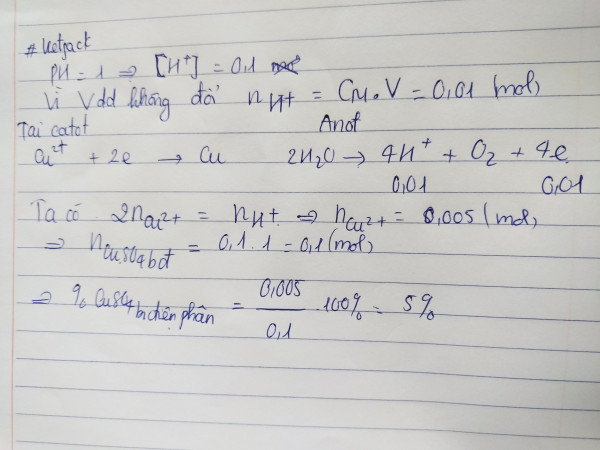 # Ketjack
PH = 1 ⇒ [H⁺] = 0,1
Vì Vdd không đổi n H⁺ = CM.V = 0,01 (mol)
Tại catot Anot
Cu²⁺ + 2e → Cu 2H₂O → 4H⁺ + O₂ + 4e
0,01 0,01
Ta có 2nCu²⁺ = nH⁺ ⇒ nCu²⁺ = 0,005 (mol)
⇒ nCuSO₄ bđ = 0,1 . 1 = 0,1 (mol)
⇒ % CuSO₄ bị điện phân = 0,005 / 0,1 . 100% = 5%